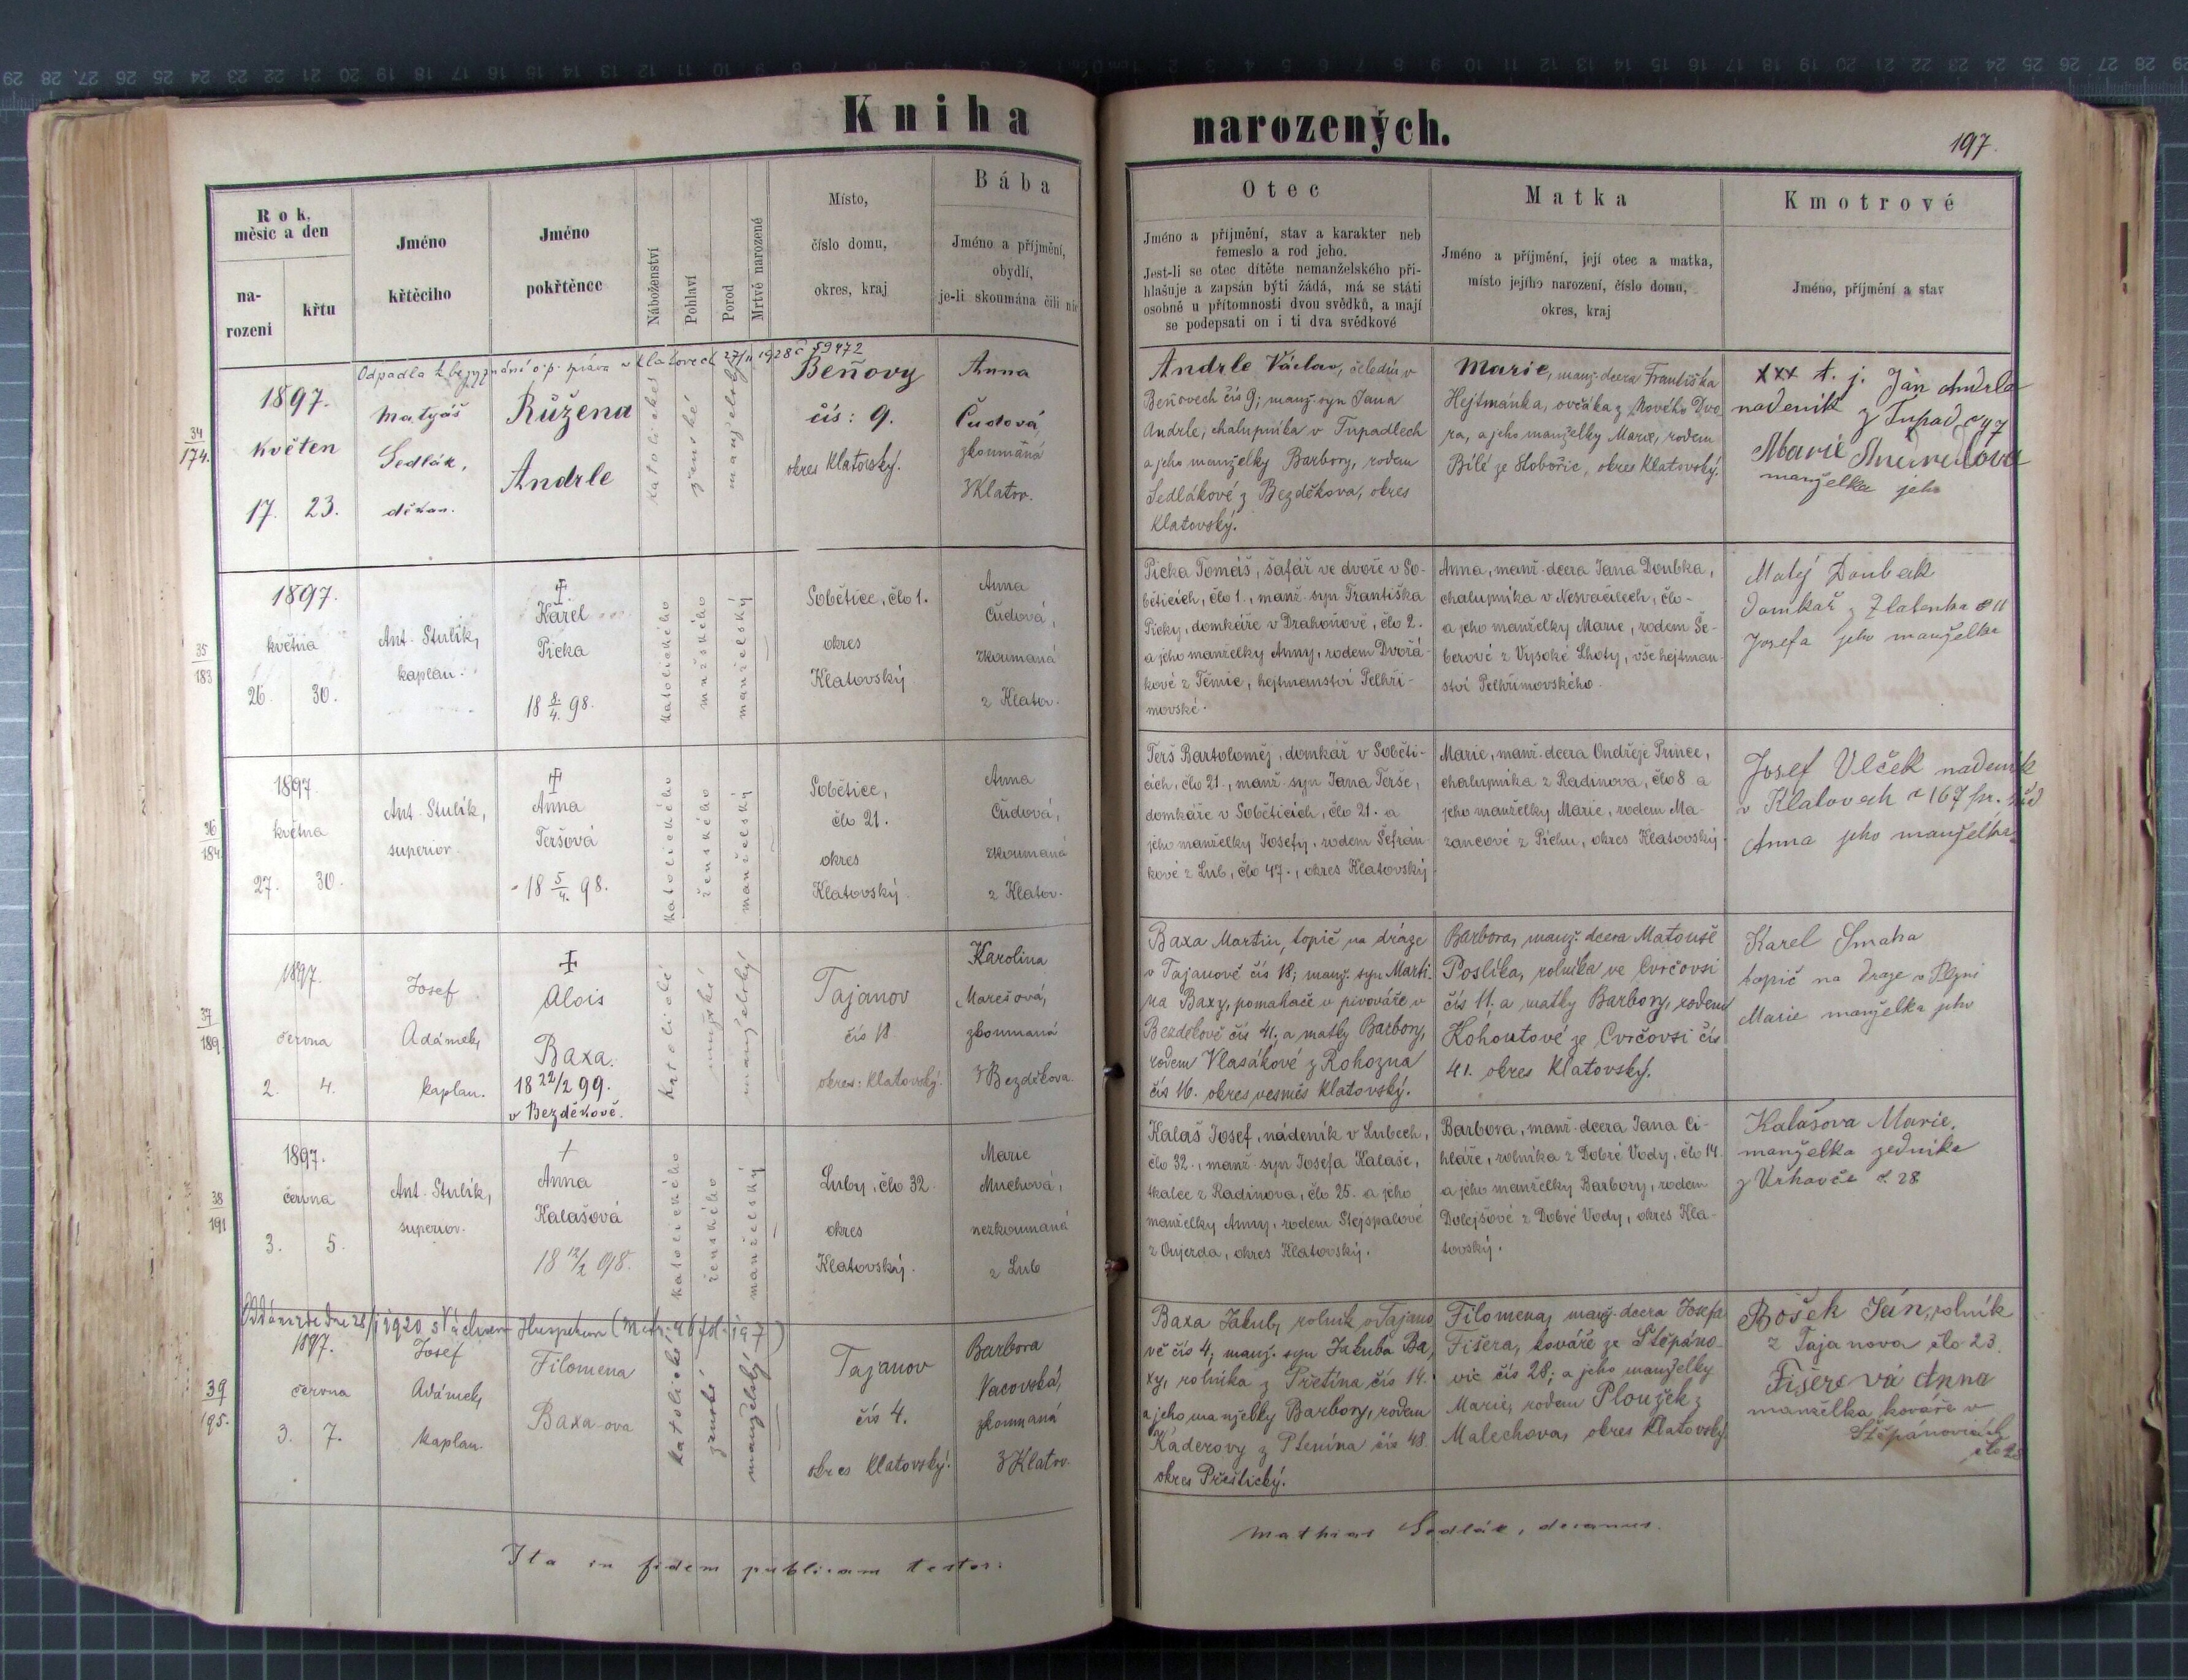 Kniha narozených.
197.
Rok, měsíc a den
narození
křtu
Jméno křtěcího
Jméno pokřtěnce
Náboženství
Pohlaví
Porod
Mrtvě narozené
Místo,
číslo domu,
okres, kraj
Bába
Jméno a příjmění,
obydlí,
je-li skoumána čili nic
Otec
Jméno a přijmění, stav a karakter neb
řemeslo a rod jeho.
Jest-li se otec dítěte nemanželského při-
hlašuje a zapsán býti žádá, má se státi
osobně u přítomnosti dvou svědků, a mají
se podepsati on i ti dva svědkové
Matka
Jméno a příjmění, její otec a matka,
místo jejího narození, číslo domu,
okres, kraj
Kmotrové
Jméno, příjmění a stav
Odpadla k bezvyznání o.p. správa v Klatovech 27/11 1928 č 59472
34
174.
1897.
květen
17. 23.
Matyáš
Sedlák,
děkan.
Růžena
Andrle
katolické
ženské
manželský
Beňovy
čís: 9.
okres Klatovský.
Anna
Čudová
zkoumaná
z Klatov.
Andrle Václav, čeledín v
Beňovech čís 9; manž. syn Jana
Andrle, chalupníka v Tupadlech
a jeho manželky Barbory, rodem
Sedlákové z Bezděkova, okres
Klatovský.
Marie, manž. dcera Františka
Hejtmánka, ovčáka z Nového Dvo
ra, a jeho manželky Marie, rodem
Bílé ze Slobořic, okres Klatovský.
xxx t. j. Ján Andrle
nadeník z Tupad č 47
Marie
manželka jeho
35
183
1897.
května
26. 30.
Ant. Stulík,
kaplan.
Karel
Picka
18 8/4. 98.
katolického
mužského
manželský
Sobětice, čлo 1.
okres
Klatovský
Anna
Čudová,
zkoumaná
z Klatov.
Picka Tomáš, šafář ve dvoře v So-
běticích, člo 1., manž. syn Františka
Picky, domkáře v Drahoňově, člo 2.
a jeho manželky Anny, rodem Dvořá-
kové z Těmic, hejtmanství Pelhři-
movské.
Anna, manž. dcera Jana Doubka,
chalupníka v Nesvačilech, člo -
a jeho manželky Marie, rodem Še-
berové z Vysoké Lhoty, vše hejtman-
ství Pelhřimovského.
Matěj Doubek
domkař z Zlatenka č 11
Josefa jeho manželka
36
184.
1897.
května
27. 30.
Ant. Stulík,
superior.
Anna
Teršová
18 5/4. 98.
katolického
ženského
manželský
Sobětice,
člo 21.
okres
Klatovský.
Anna
Čudová,
zkoumaná
z Klatov.
Terš Bartoloměj, domkář v Soběti-
cích, člo 21., manž. syn Jana Terše,
domkáře v Soběticích, člo 21. a
jeho manželky Josefy, rodem Šefrán-
kové z Lub, člo 47., okres Klatovský
Marie, manž. dcera Ondřeje Prince,
chalupníka z Radinova, člo 8 a
jeho manželky Marie, rodem Ma-
zancové z Píchu, okres Klatovský.
Josef Vlček nadeník
v Klatovech č 167
Anna jeho manželka
37
189.
1897.
června
2. 4.
Josef
Adámek,
kaplan.
Alois
Baxa.
18 22/2 99.
v Bezděkově.
katolické
mužské
manželský
Tajanov
čís 18
okres: Klatovský.
Karolina
Marešová,
zkoumaná
z Bezděkova.
Baxa Martin, topič na dráze
v Tajanově čís 18; manž. syn Marti-
na Baxy, pomahače v pivováře v
Bezděkově čís 41. a matky Barbory,
rodem Vlasákové z Rohozna
čís 16. okres vesměs Klatovský.
Barbora, manž. dcera Matouše
Poslíka, rolníka ve Cvrčovsi
čís 11. a matky Barbory, rodem
Kohoutové ze Cvrčovsi čís
41. okres Klatovský.
Karel Smaha
topič na draze v Plzni
Marie manželka jeho
38
191
1897.
června
3. 5.
Ant. Stulík,
superior.
Anna
Kalašová
18 12/2 98.
katolického
ženského
manželský
Luby, člo 32.
okres
Klatovský.
Marie
Muchová,
nezkoumaná
z Lub
Kalaš Josef, nádeník v Lubech,
člo 32., manž. syn Josefa Kalaše,
tkalce z Radinova, člo 25. a jeho
manželky Anny, rodem Stejspalové
z Oujezda, okres Klatovský.
Barbora, manž. dcera Jana Ci-
hláře, rolníka z Dobré Vody, člo 14.
a jeho manželky Barbory, rodem
Dolejšové z Dobré Vody, okres Kla-
tovský.
Kalašova Marie,
manželka zedníka
z Vrhavče č. 28
Oddána zde dne 28/1 1920 s Václavem
39
195.
1897.
června
3. 7.
Josef
Adámek,
kaplan.
Filomena
Baxa-ova
katolické
ženské
manželský
Tajanov
čís 4.
okres Klatovský.
Barbora
Vacovská,
zkoumaná
z Klatov.
Baxa Jakub, rolník v Tajano
vě čís 4; manž. syn Jakuba Ba
xy, rolníka z Přetína čís 14.
a jeho manželky Barbory, rodem
Káderovy z Ptenína čís 48.
okres Přeštický.
Filomena, manž. dcera Josefa
Fišera, kováře ze Štěpáno-
vic čís 28; a jeho manželky
Marie, rodem Ploužek z
Malechova, okres Klatovský
Bošek Ján, rolník
z Tajanova člo 23.
Fišerová Anna
manželka kováře v
Štěpánovicích
člo 28
Ita in fidem publicam testor:
Mathias Sedlák, decanus.